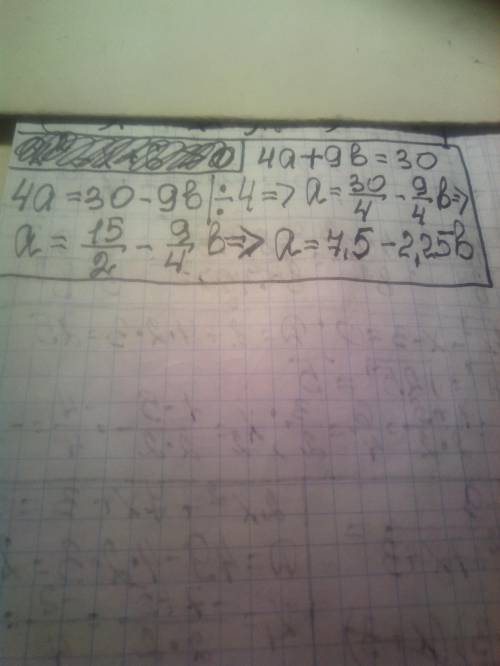 4a+9b=30
4a=30-9b|÷4=>a=30/4-9/4b=>
a=15/2-9/4b=>a=7,5-2,25b